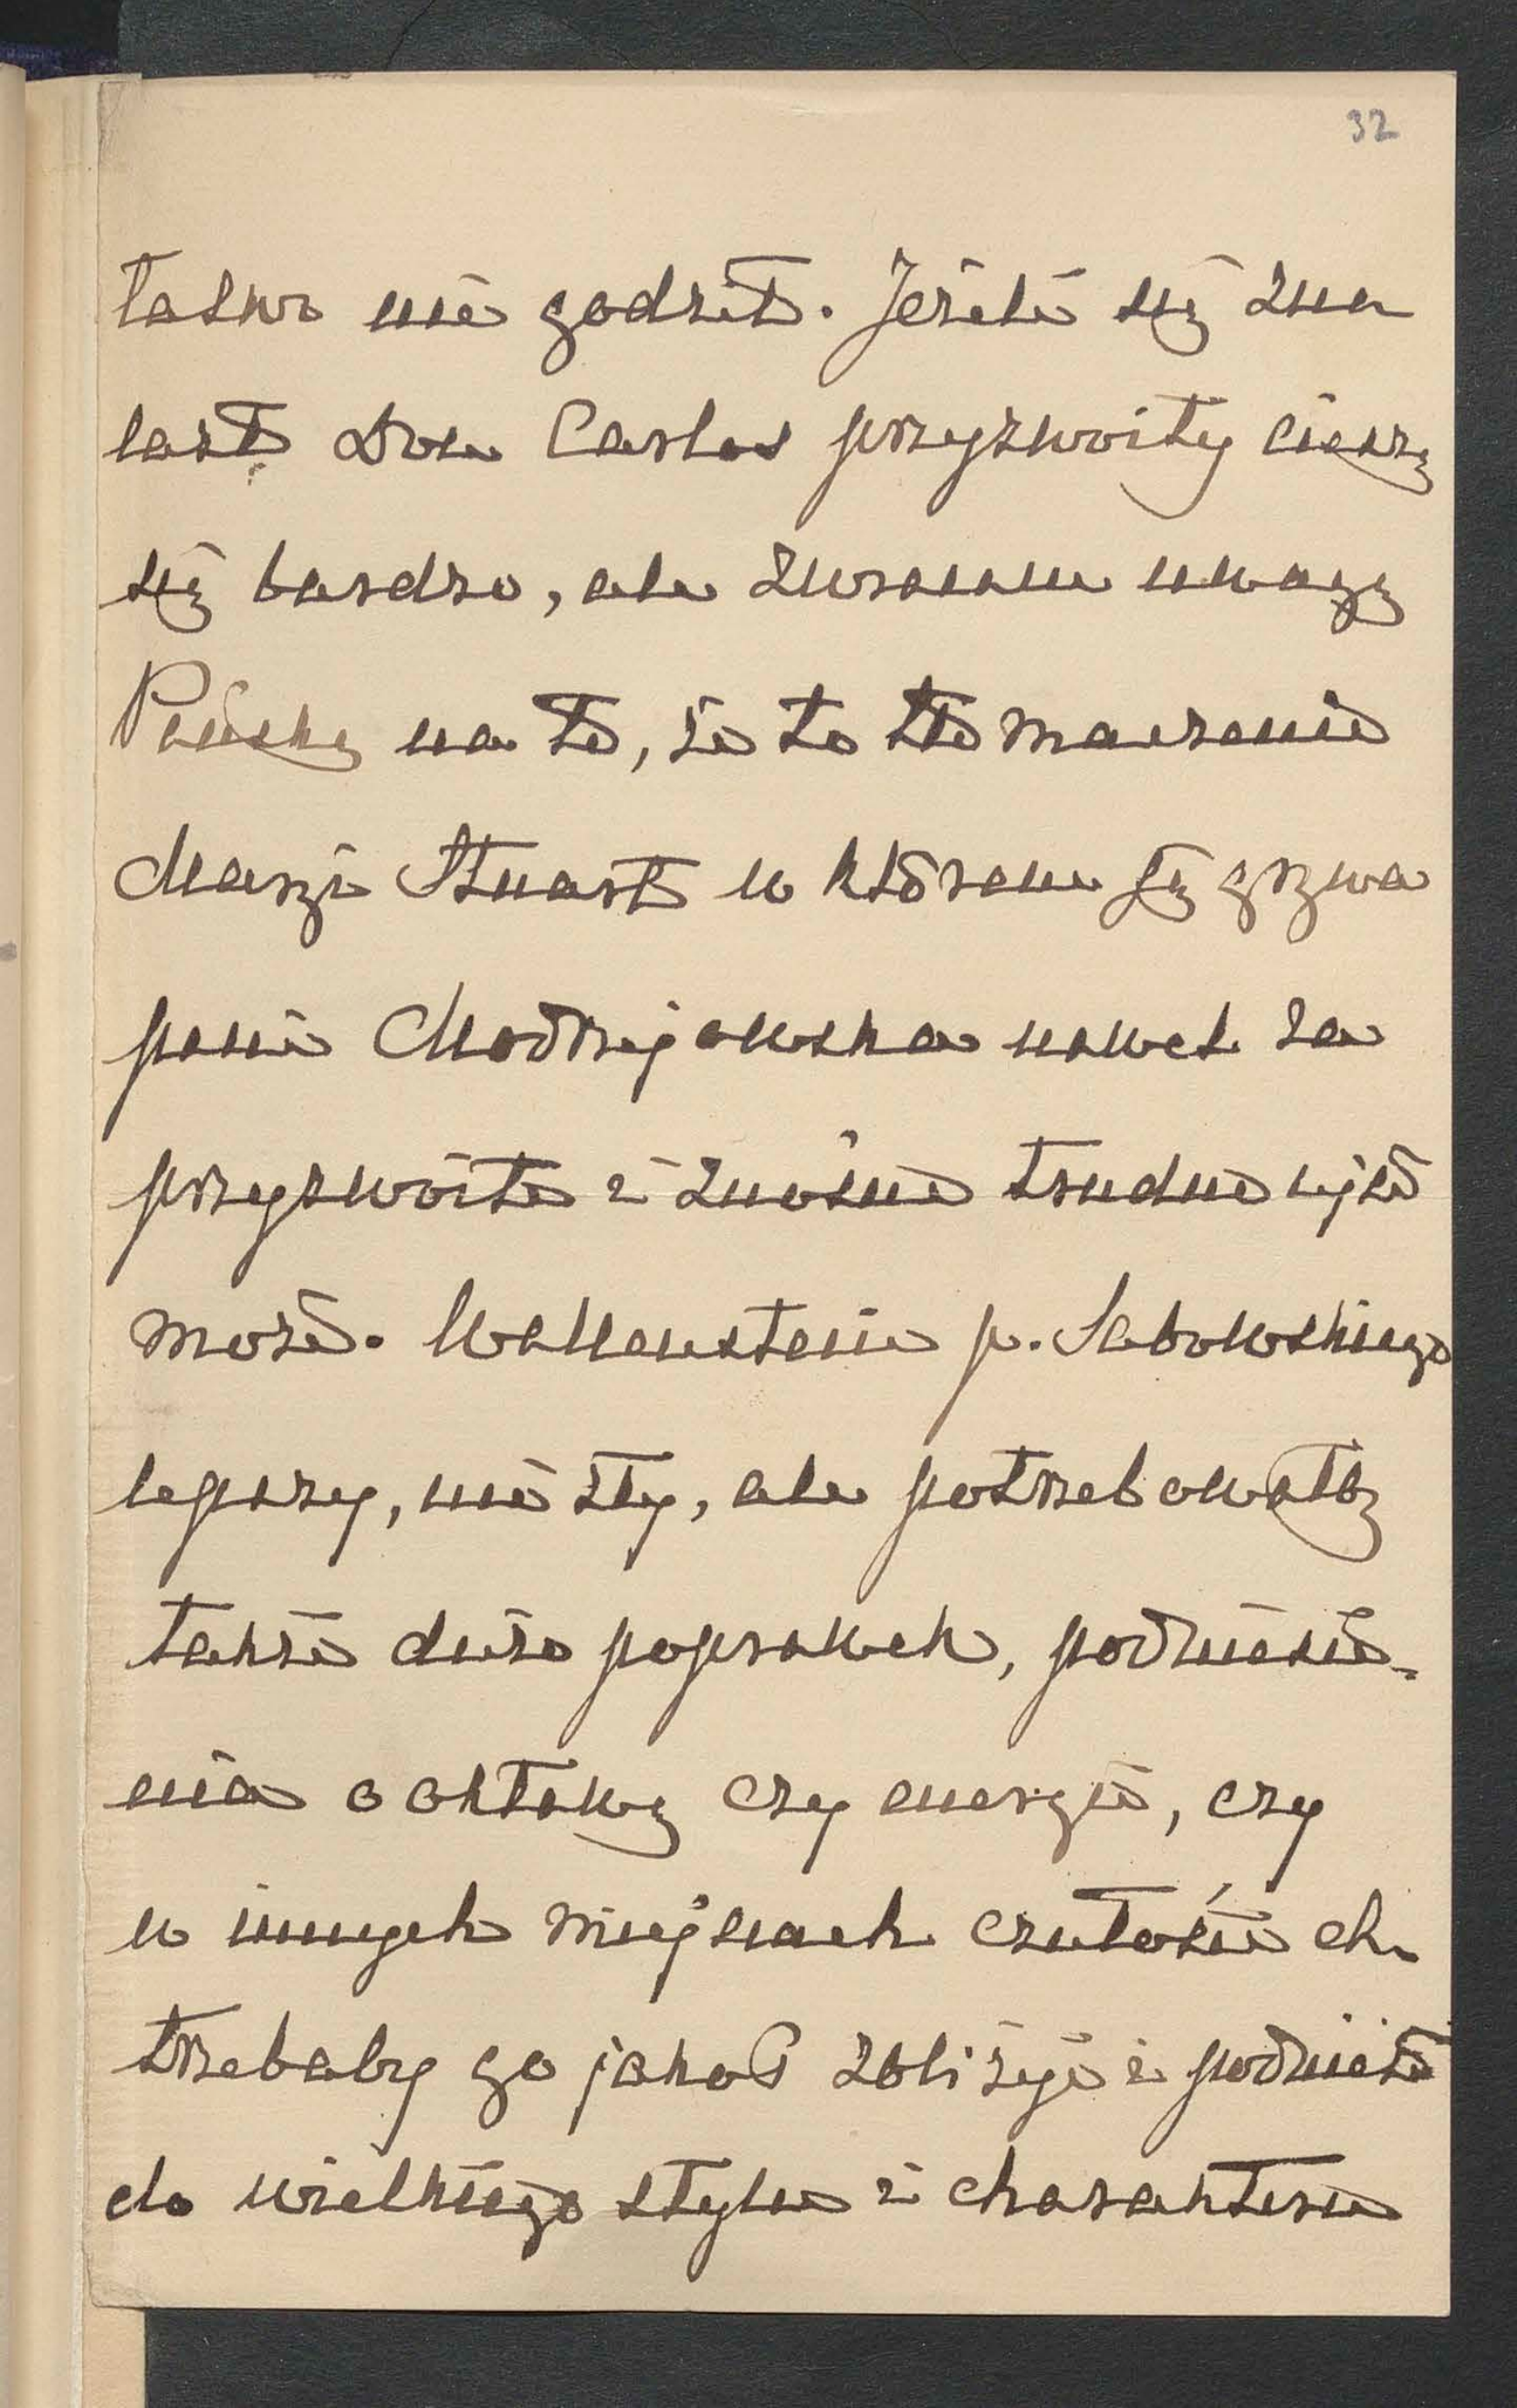 32
łatwo nie godził. Jeżeli się zna
lazł Don Carlos przyzwoity cieszę
się bardzo, ale zwracam uwagę
Pańską na to, że to tłomaczenie
Maryi Stuart w którem się grywa
pani Modrzejowska nawet za
przyzwoite i znośne trudno ujść
może. Wallenstein p. Sabowskiego
lepszy, nie zły, ale potrzebowałby
także dużo poprawek, podniesie-
nia o oktawę czy energii, czy
w innych miejscach czułości etc.
trzebaby go jakoś zbliżyć i podnieść
do wielkiego stylu i charakteru